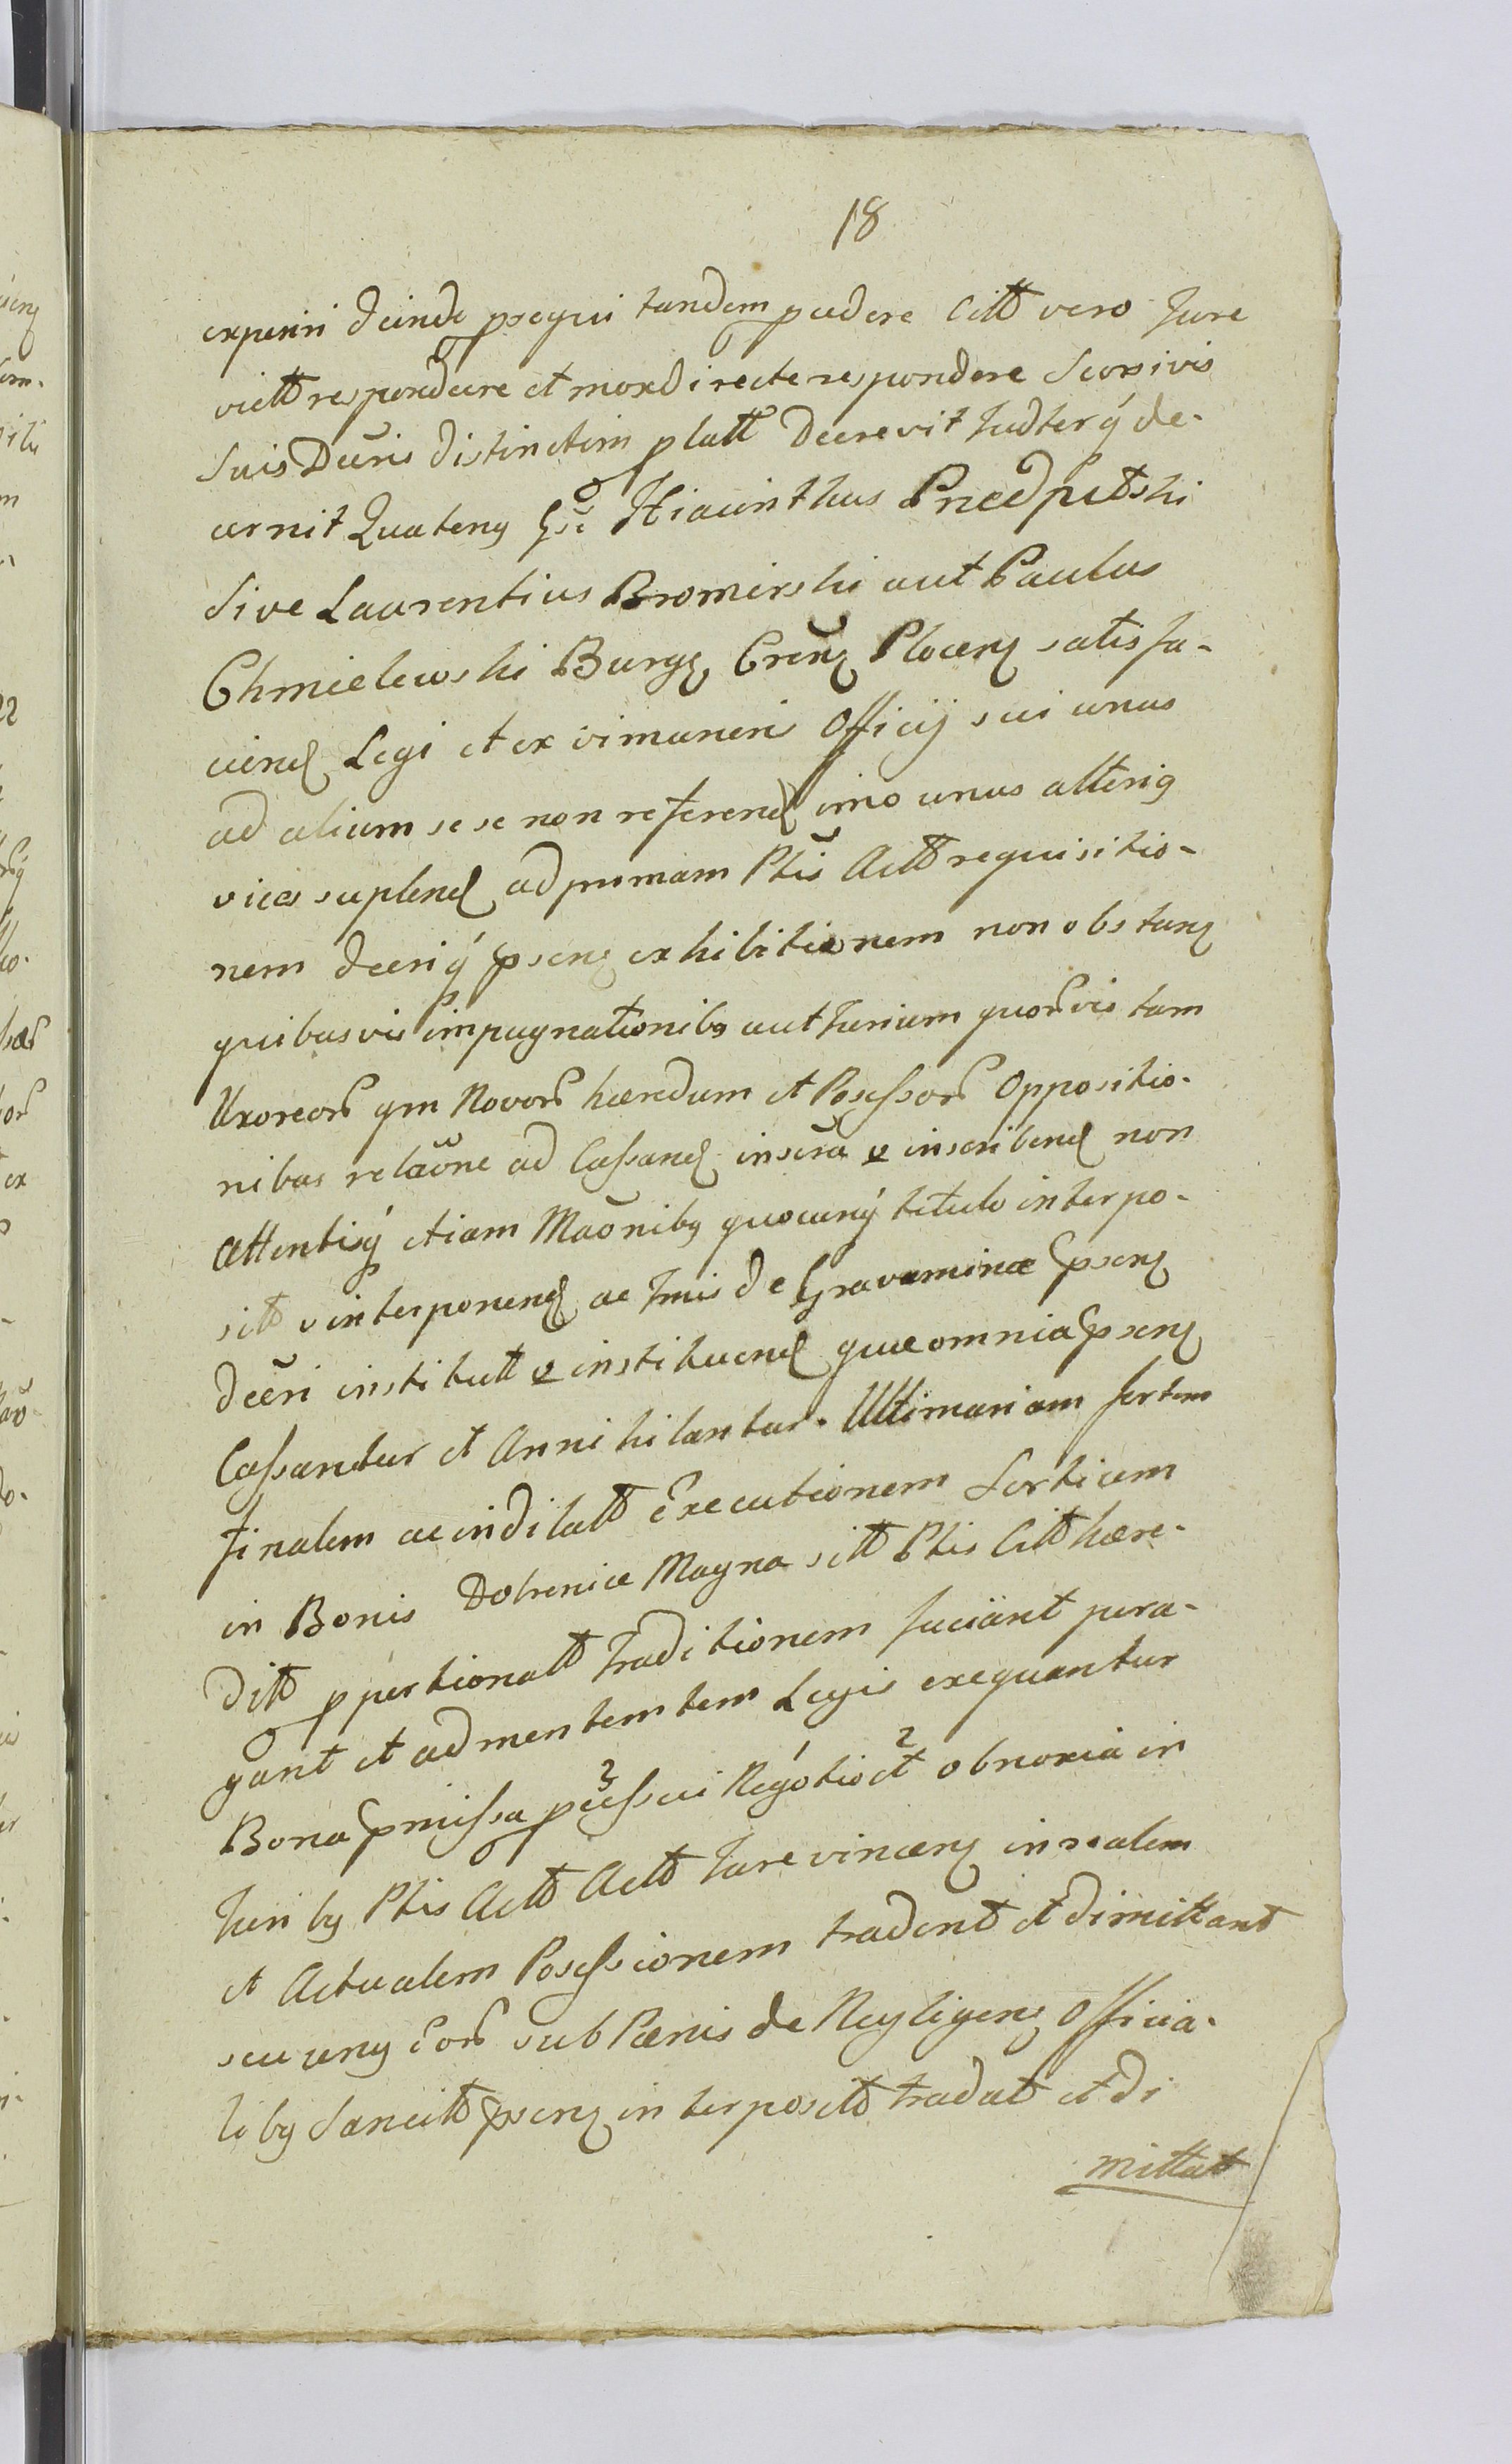 18
experiri deinde pseqvi tandem pcedere Citt vero Jure
victt respondere et mox directe respondere Seorsivis
suis Decris distinctim platt decrevit Judterq́ de-
cernit Quateng Gsi Hiacinthus
Sive Laurentius Bromirski aut Paulus
Chmielewski Burgg Crens Plocens satisfa-
ciend Legi et ex vi muneris Officij sui unus
ad alium se se non referend imo unus alterig
vices suplend ad primam Ptis Actt requisitio-
nem decriq́ psens exhibitionem non obstang
quibusvis impugnationibg aut Jurium quorvis tam
Uxoreor qm Novor hæredum et Possessor Oppositio-
nibus relaõne ad Cassand. inscra v inscribend non
attentisq́ etiam Maõnibg quocunq́ titulo interpo-
sitt v interponend ac Tmis de Gravamine psens
decri institutt v instituend quæ omnia psens
Cassantur et Annihilantur. Ultimariam fortem
finalem ac indilatt Executionem Sortium
in Bonis Dobrenice Magna sitt Ptis Citt hære-
ditt ppertionatt Traditionem faciant pera-
gant et ad mentem tem Legis exequantur
Bona pmissa pcessui Negotio ct obnoxia in
Juribg Ptis Actt Actt Jure vincens in realem
et Actualem Possessionem tradent et dimittant
seu ung Eor sub Pænis de Negligens Officia-
libg Sancitt psens interpositt tradat et di
mittat